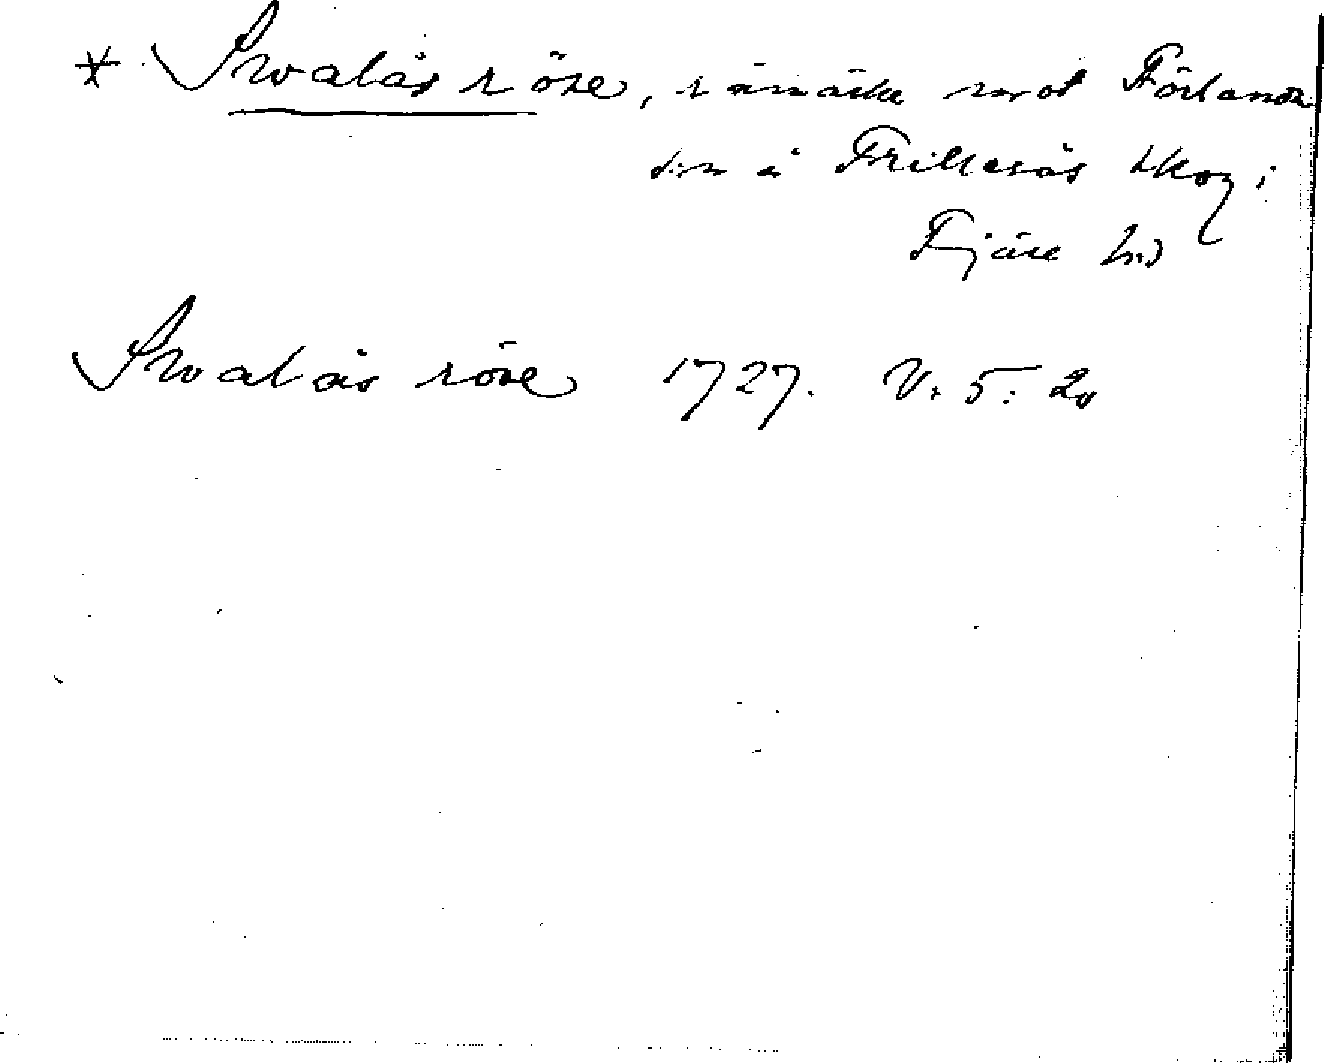 * Swalås röse, råmärke mot Förlanda
sn å Frillesås skog i
Fjäre hd
Swalås röse 1727. V. 5: 20